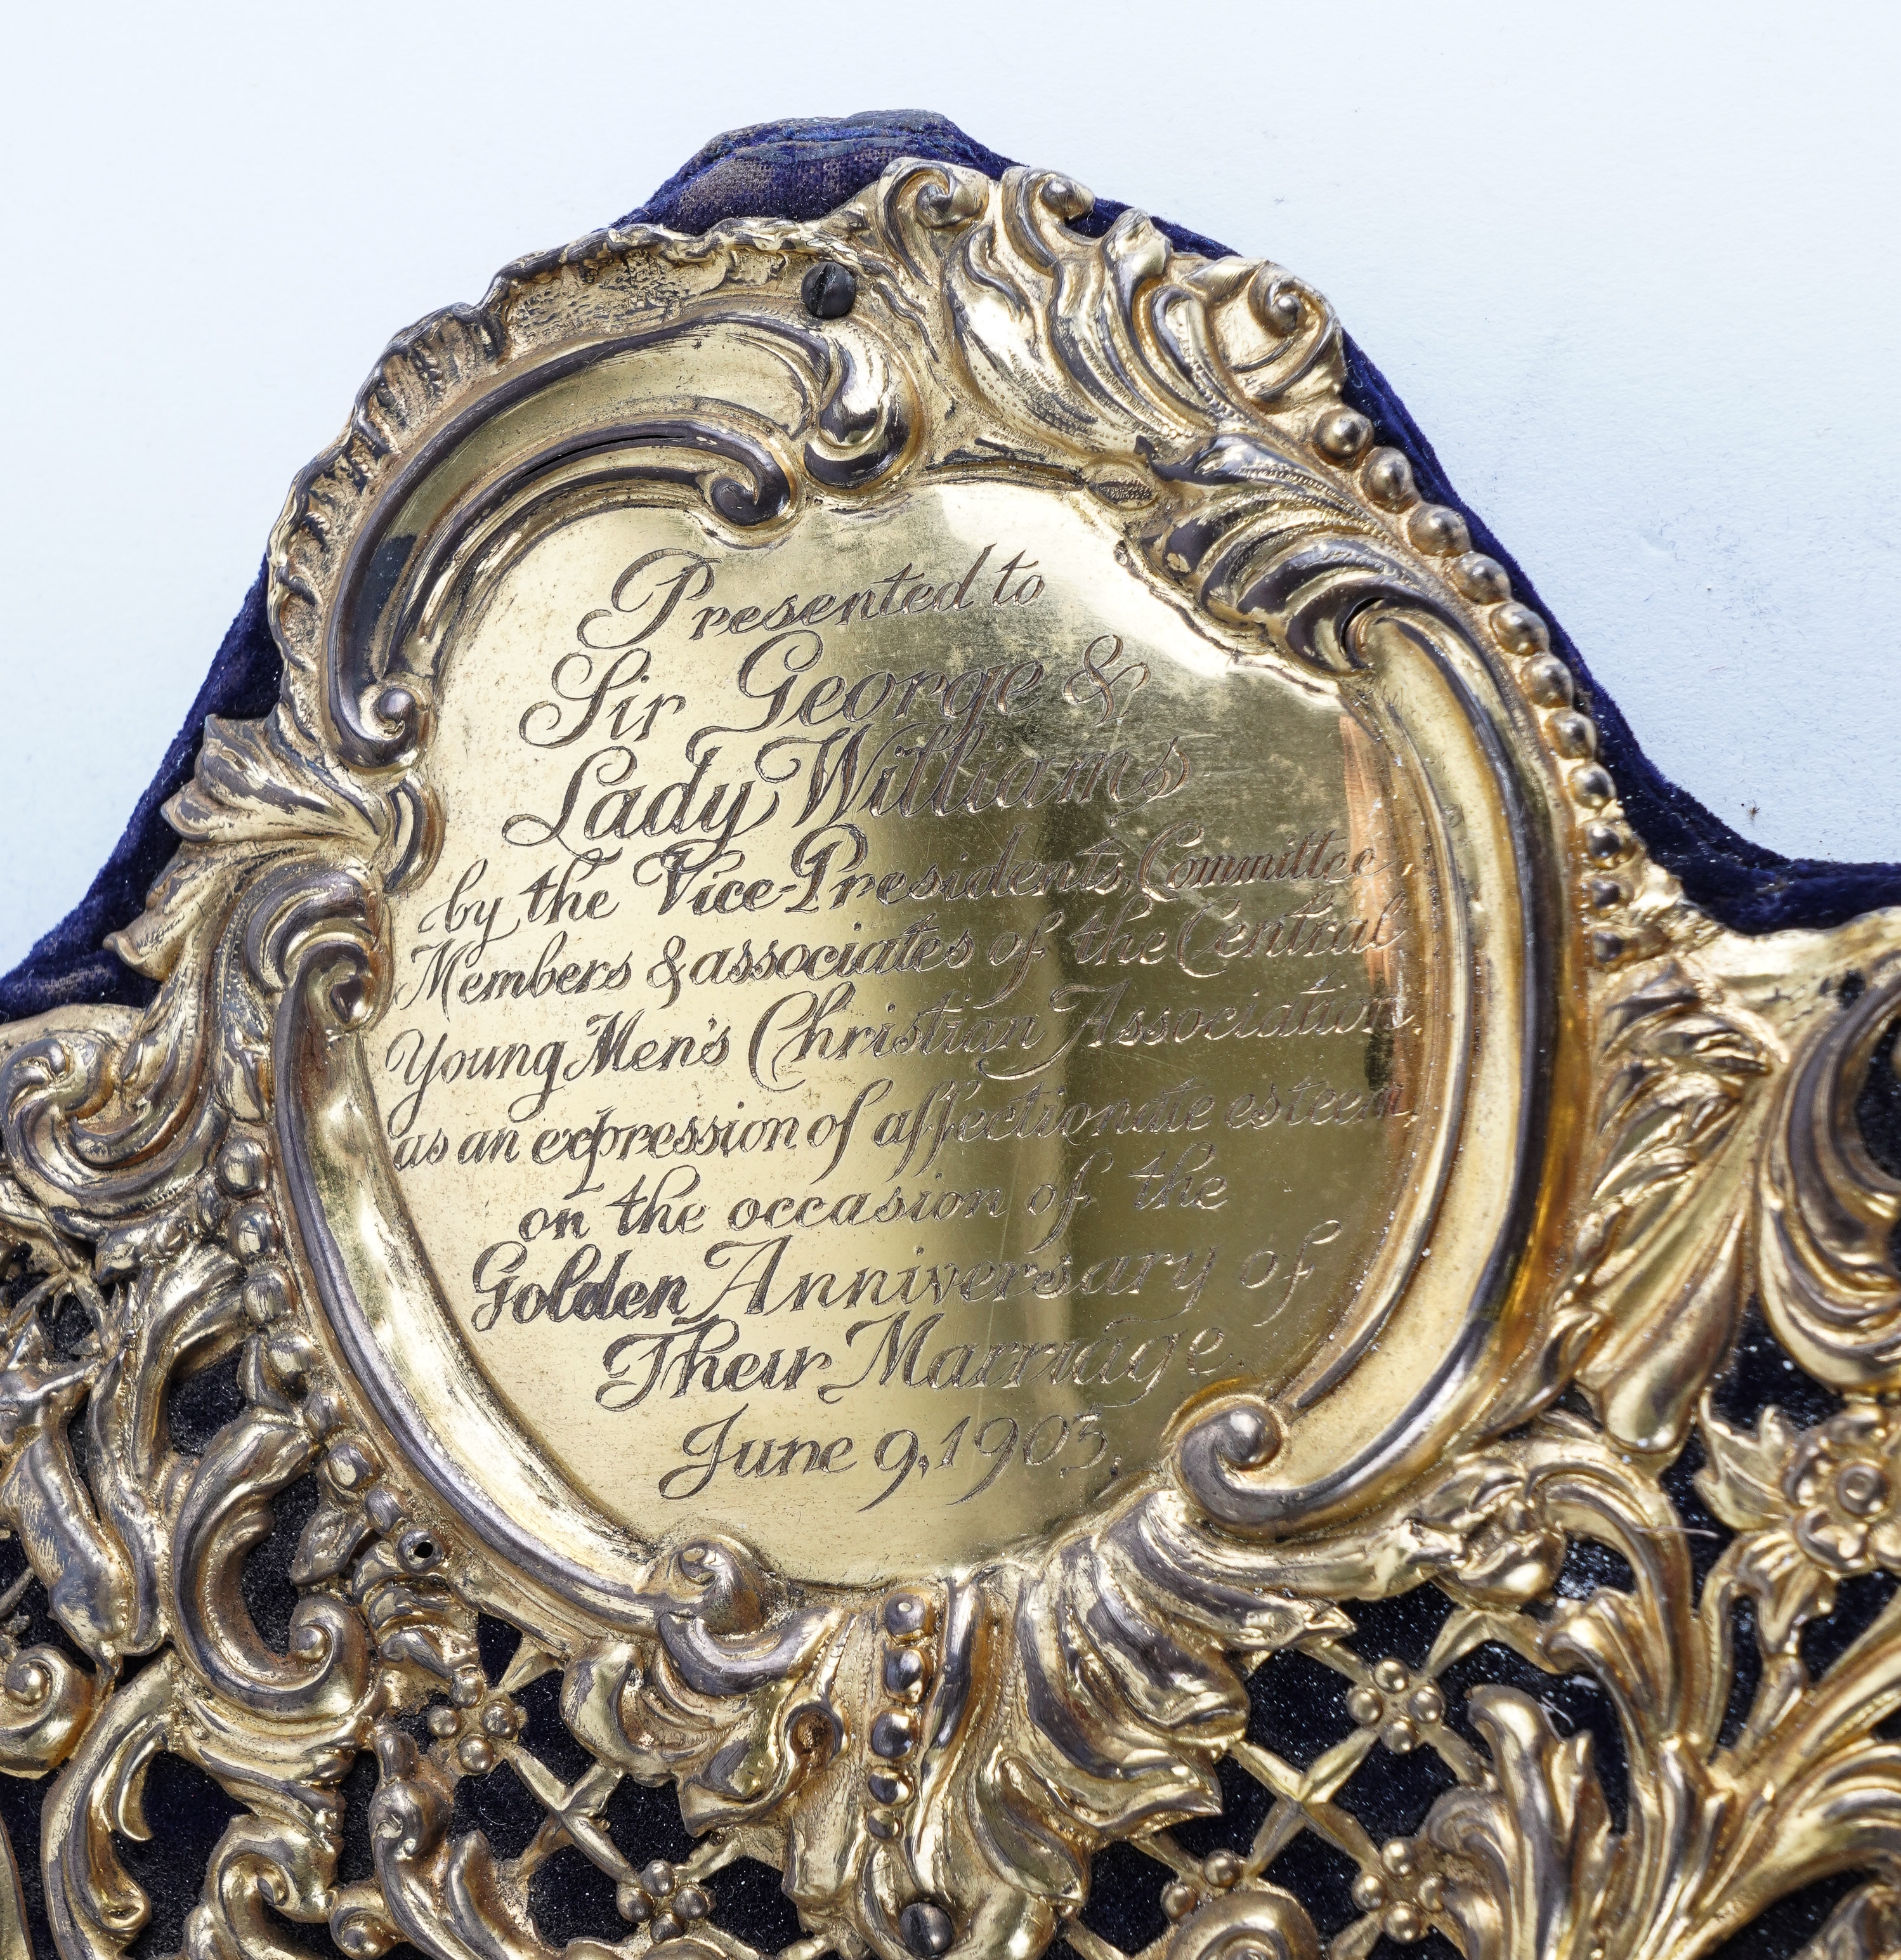 Presented to
Sir George &
Lady Williams
by the Vice-Presidents, Committee,
Members & associates of the Central
Young Men's Christian Association,
as an expression of affectionate esteem,
on the occasion of the
Golden Anniversary of
Their Marriage.
June 9, 1903.